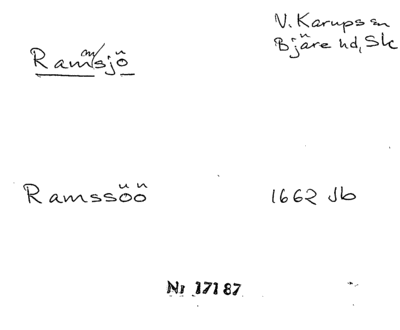 Ramsjö
V. Karups sn
Bjäre hd, Sk
Ramssöö
1662 Jb
Nr 17187